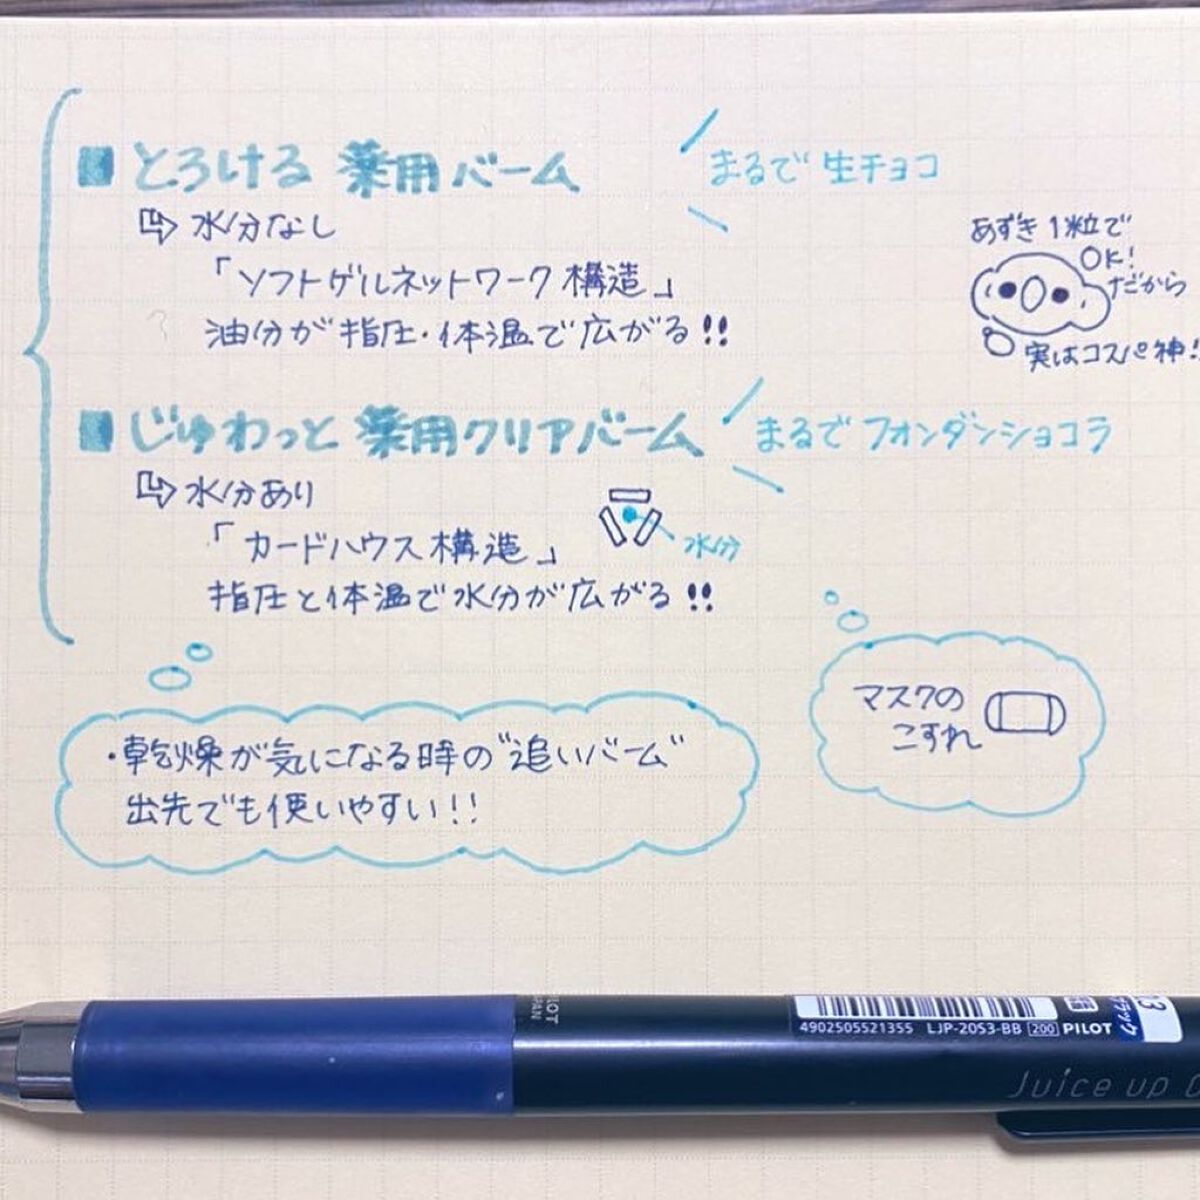 ■ とろける 薬用バーム
まるで 生チョコ
水分なし
「ソフトゲルネットワーク構造」
油分が指圧・体温で広がる!!
あずき1粒で
OK!
だから
実はコスパ神!
■ じゅわっと 薬用クリアバーム
まるでフォンダンショコラ
水分あり
「カードハウス構造」
水分
指圧と体温で水分が広がる!!
マスクの
こすれ
・乾燥が気になる時の"追いバーム"
出先でも使いやすい!!
PILOT
JAPAN
4902505521355 LJP-20S3-BB 200 PILOT
ブラック
Juice up